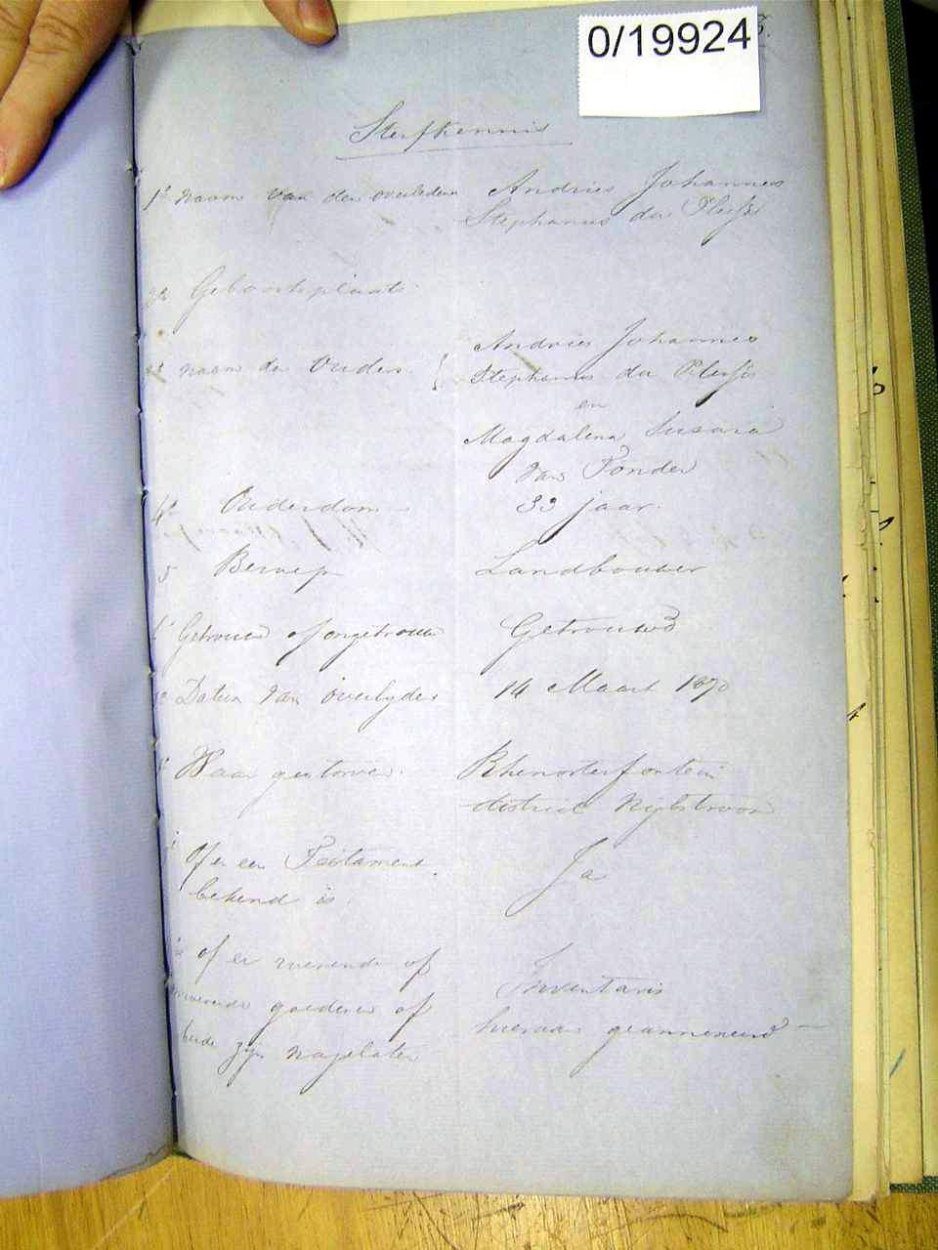 0/19924
Sterfkennis
1e naam van den overleden Andries Johannes
Stephanus du Plessis
2e Geboorteplaats
Andries Johannes
3e naam der Ouders Stephanus du Plessis
en
Magdalena Susara
van Tonder
4e Ouderdom 33 jaar
5 Beroep Landbouwer
6e Getrouwd of ongetrouwd Getrouwd
Datum van overlyden 14 Maart 1870
Waar gestorven Rhenosterfontein
district Nylstroom
of er een Testament Ja
bekend is.
of er roerende of Inventaris
onroerende goederen of hieraan geannexeerd
beide zyn nagelaten